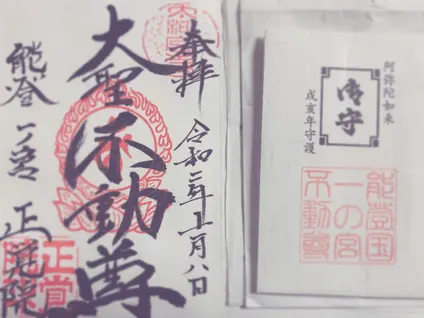 奉拝
令和二年十一月八日
大聖不動尊
能登一ノ宮 正覚院
阿弥陀如来
御守
戌亥年守護
能登国
一の宮
不動尊